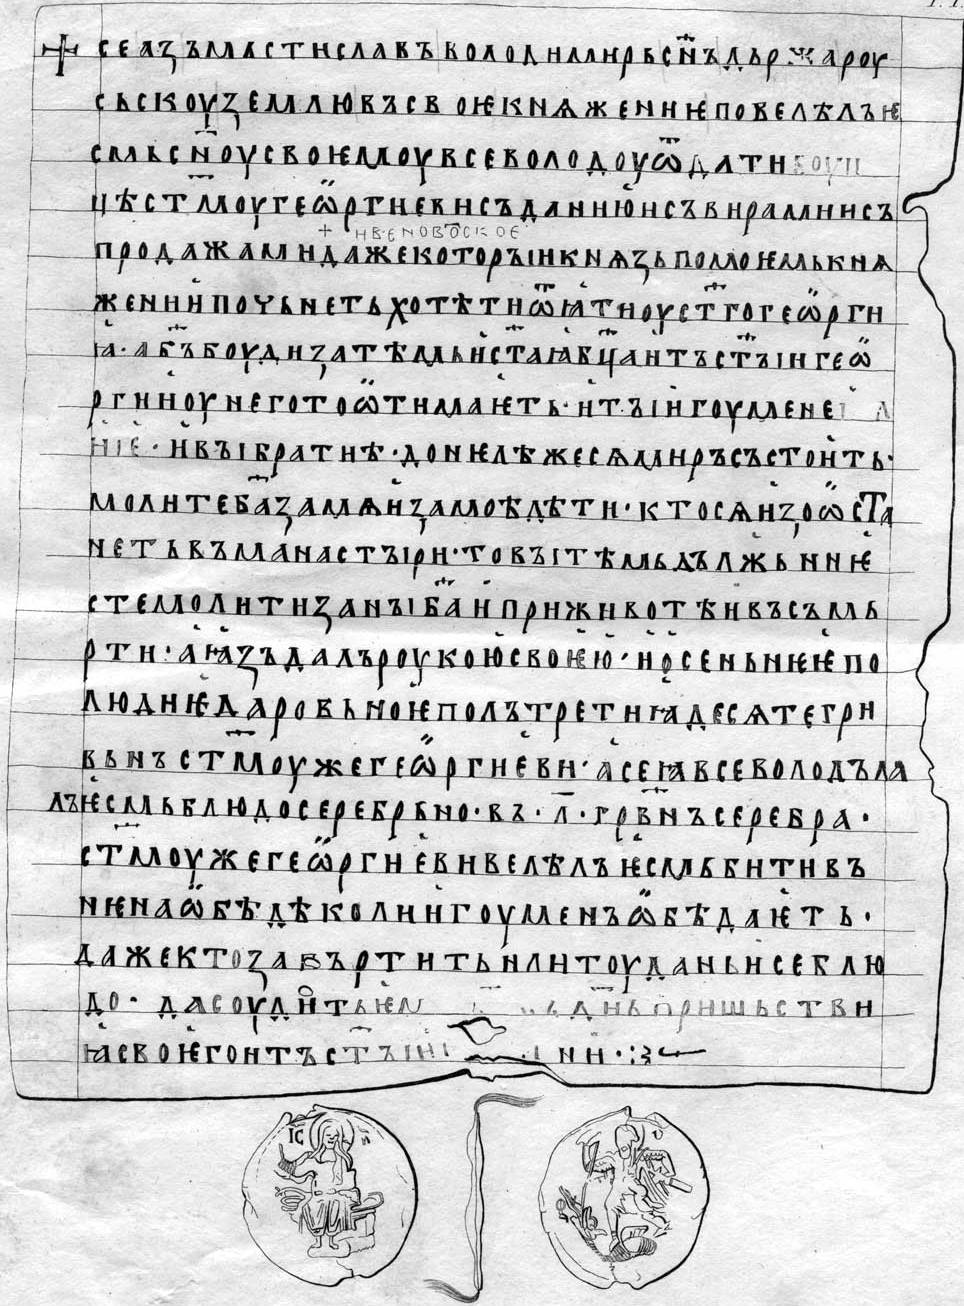 ✝ се азъ мьстиславъ володимирь сн҃ъ дьржа роу
сьскоу землю въ своѥ кнѧжениѥ повелѣлъ ѥ
смь сн҃оу своѥмоу всеволодоу ѿдати боуи
цѣ ст҃моу геѡргиеви съ данию и съ вирами и съ
+ и вено вотское
продажами даже которыи кнѧзь по моѥмь кнѧ
жении почьнеть хотѣти ѿꙗти оу ст҃го геѡрги
ꙗ· а б҃ъ боуди за тѣмь и ст҃аꙗ бц҃а и тъ ст҃ыи геѡ
ргии оу него то ѿтимаѥть· и ты игоумене
ние· и вы братиѣ· донелѣже сѧ миръ състоить·
молите б҃а за мѧ и за моѣ дѣти· кто сѧ изоѡста
неть въ манастыри· то вы тѣмь дължьни ѥ
сте молити за ны б҃а и при животѣ и въ съмь
рти· а ꙗзъ далъ роукою своѥю· и осеньнеѥ по
людиѥ даровьноѥ полътретиꙗдесѧте гри
вьнъ ст҃моу же геѡргиеви· а се ꙗ всеволодъ да
лъ ѥсмь блюдо серебрьно· въ ·л҃· грв҃нъ серебра·
ст҃моу же геѡргиеви велѣлъ ѥсмь бити въ
нѥ на ѡбѣдѣ коли игоуменъ ѡбѣдаѥть·
даже кто запъртить или тоу дань и се блю
до· да соудить ѥмоу дн҃ь пришьстви
ꙗ своѥго и тъ ст҃ыи
IC